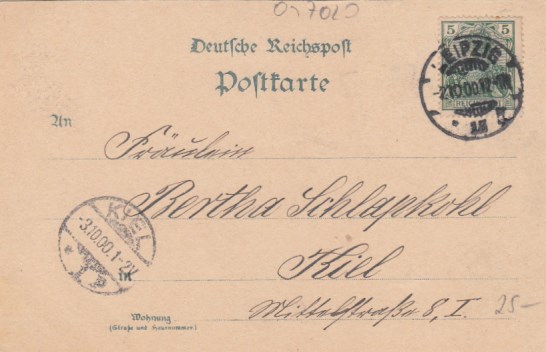 5 5
Deutsche Reichspost
Postkarte
LEIPZIG
2.10.00.
An
Fräulein
Bertha Schlapkohl
KIEL
-3.10.00.1-2N.
Kiel
in
Mittelstraße 8, I.
25-
Wohnung
(Straße und Hausnummer)